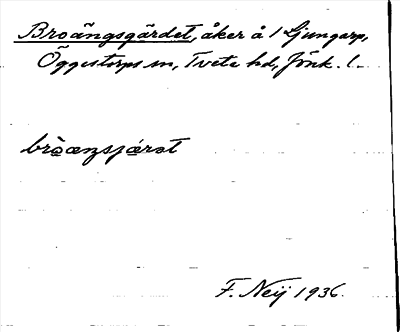 Broängsgärdet, åker å 1 Ljungarp,
Öggestorps sn, Tveta hd, Jönk. l.
bròæŋsjærət
F. Neij 1936.